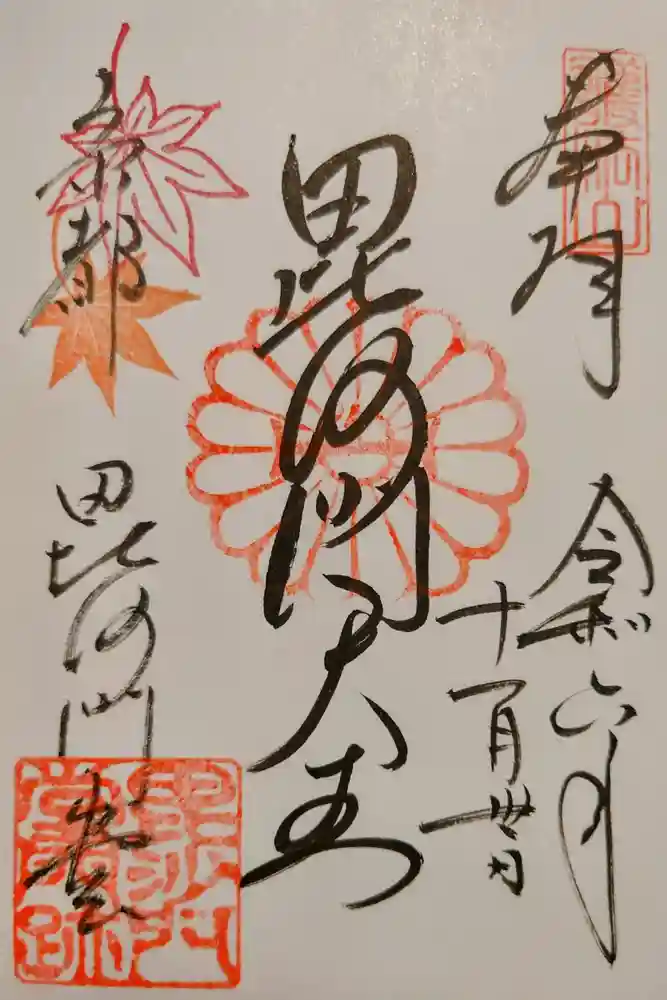 奉拝
令和六年
十一月卅日
毘沙門天王
京都
毘沙門堂
護法山